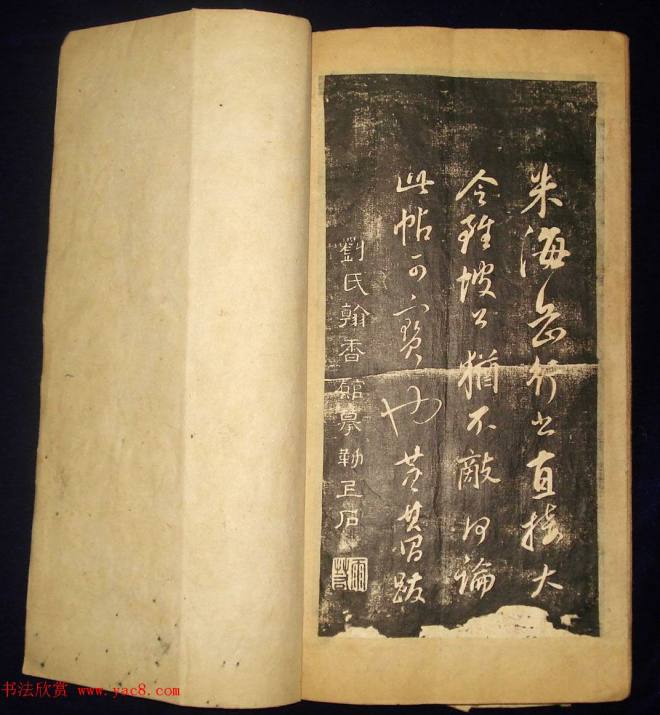 米海岳行書直接大
令雖坡公猶不敵何論
此帖可寶也董其昌跋
劉氏翰香館摹勒上石
书法欣赏 www.yac8.com